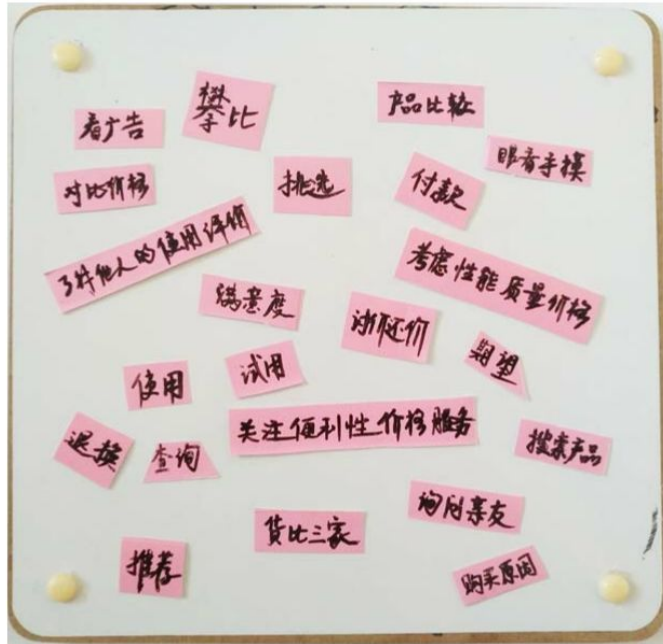 看广告
攀比
产品比较
眼看手摸
对比价格
挑选
付款
了解他人的使用评价
考虑性能质量价格
满意度
讨价还价
期望
使用
试用
关注便利性价格服务
退换
查询
搜索产品
货比三家
询问亲友
推荐
购买原因